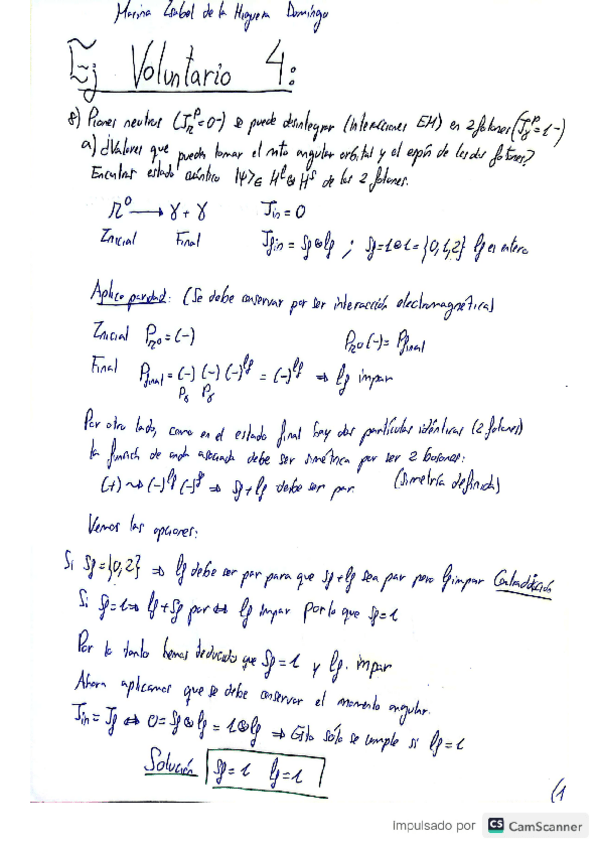 Marina Isabel de la Higuera Domingo
Ej Voluntario 4:
8) Piones neutros (J^P_π=0-) se puede desintegrar (Interacciones EM) en 2 fotones (J^P_γ=1-)
a) ¿Valores que puedan tomar el mto angular orbital y el espín de los dos fotones?
Encontrar estado cuántico |Ψ> ∈ H^l ⊗ H^s de los 2 fotones.
π^0 → γ + γ J_in = 0
Inicial Final J_fin = S_f ⊗ l_f ; S_f = 1⊗1 = {0,1,2} l_f es entero
Aplico paridad: (Se debe conservar por ser interacción electromagnética)
Inicial P_π0 = (-) P_π0 (-) = P_final
Final P_final = (-) (-) (-)^lf = (-)^lf ⇒ l_f impar
P_γ P_γ
Por otro lado, como en el estado final hay dos partículas idénticas (2 fotones)
la función de onda asociada debe ser simétrica por ser 2 bosones:
(+) ~> (-)^lf (-)^sf ⇒ S_f + l_f debe ser par. (Simetría definida)
Vemos las opciones:
Si S_f = {0,2} ⇒ l_f debe ser par para que s_f + l_f sea par pero l_f impar Contradicción
Si S_f = 1 ⇒ l_f + S_f par ⇔ l_f impar por lo que s_f = 1
Por lo tanto hemos deducido que S_f = 1 y l_f. impar
Ahora aplicamos que se debe conservar el momento angular.
J_in = J_f ⇔ 0 = S_f ⊗ l_f = 1 ⊗ l_f ⇒ Esto sólo se cumple si l_f = 1
Solución S_f = 1 l_f = 1
(1
Impulsado por CS CamScanner